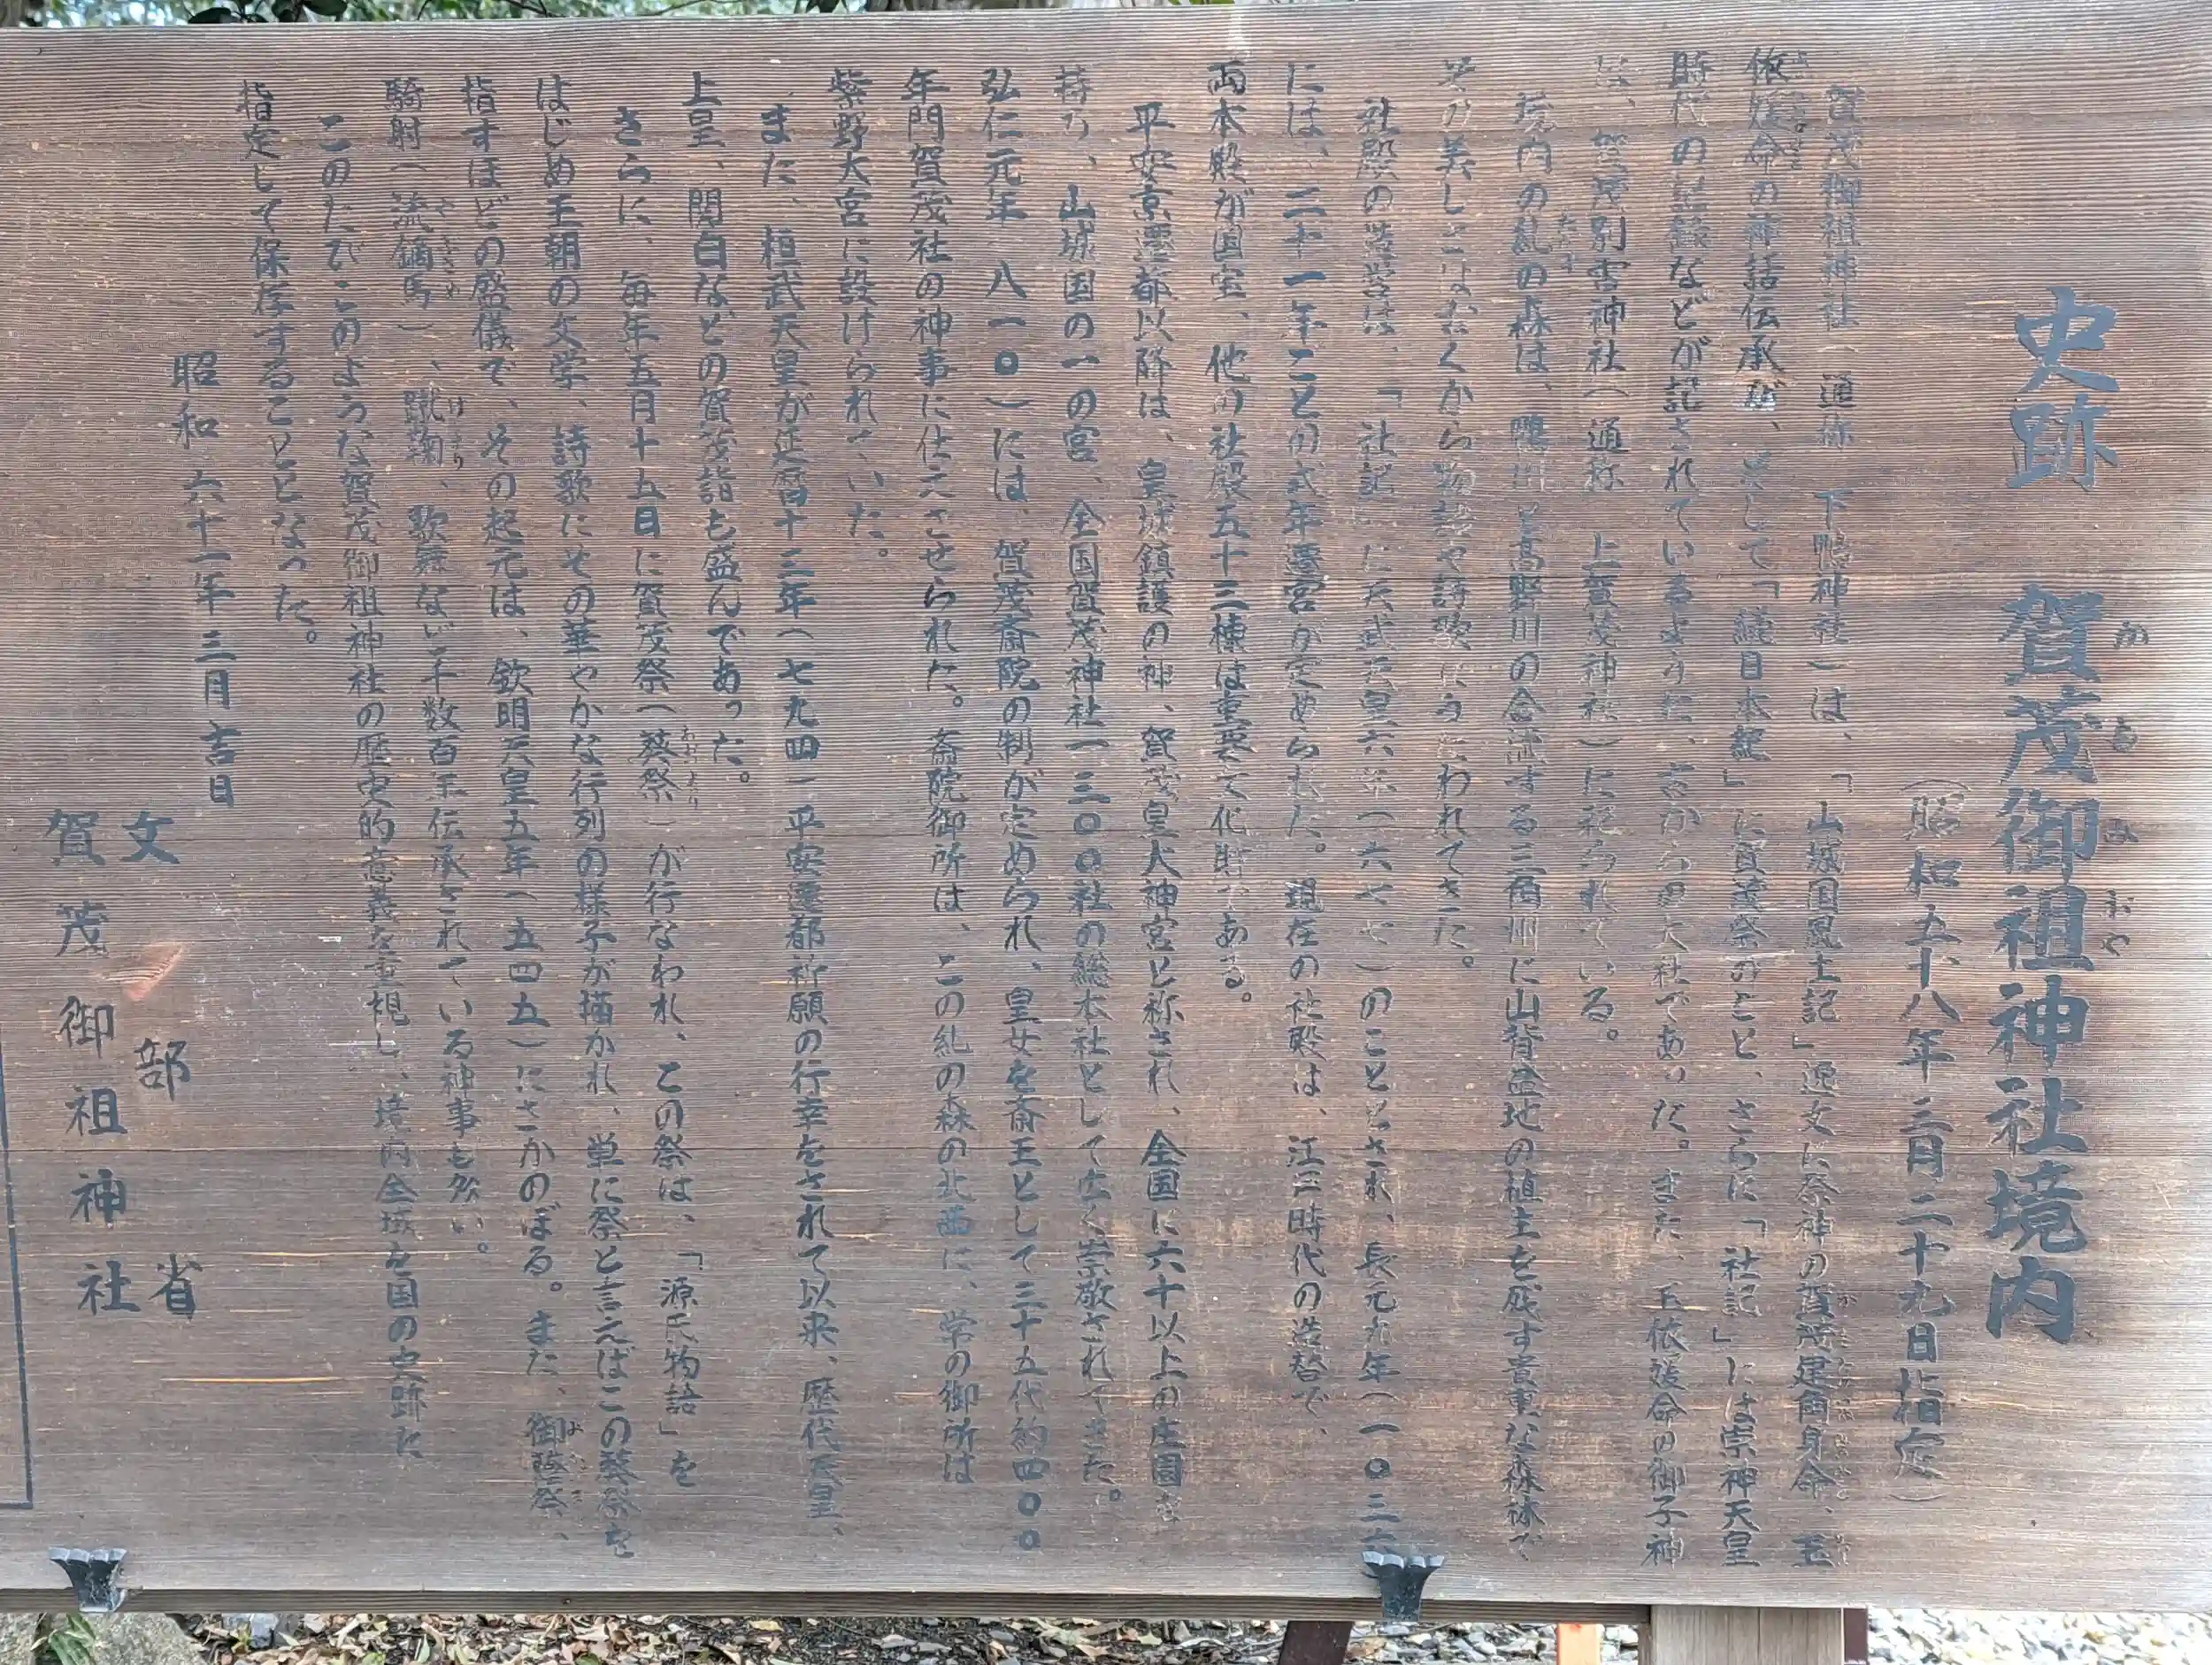 史跡 賀茂御祖神社境内
(昭和五十八年三月二十九日指定)
賀茂御祖神社(通称 下鴨神社)は、「山城国風土記」逸文に祭神の賀茂建角身命、玉
依媛命の神話伝承が、そして「続日本紀」に賀茂祭のこと、さらに「社記」には崇神天皇
時代の記録などが記されているように、古からの大社であった。また、玉依媛命の御子神
は、賀茂別雷神社(通称 上賀茂神社)に祀られている。
境内の糺の森は、鴨川と高野川の合流する三角州に山背盆地の植生を残す貴重な森林で
その美しさはむくから物語や詩歌にうたわれてきた。
社殿の造営は、「社記」に天武天皇六年(六七七)のこととされ、長元九年(一〇三六
には、二十一年ごとの式年遷宮が定められた。現在の社殿は、江戸時代の造替で、
両本殿が国宝、他の社殿五十三棟は重要文化財である。
平安京遷都以降は、皇城鎮護の神、賀茂皇大神宮と称され、全国に六十以上の庄園を
持ち、山城国の一の宮、全国賀茂神社一三〇〇社の総本社として広く崇敬されてきた。
弘仁元年(八一〇)には、賀茂斎院の制が定められ、皇女を斎王として三十五代約四〇〇
年間賀茂社の神事に仕えさせられた。斎院御所は、この糺の森の北西に、常の御所は
紫野大宮に設けられていた。
また、桓武天皇が延暦十三年(七九四)平安遷都祈願の行幸をされて以来、歴代天皇、
上皇、関白などの賀茂詣も盛んであった。
さらに、毎年五月十五日に賀茂祭(葵祭)が行なわれ、この祭は、「源氏物語」を
はじめ王朝の文学、詩歌にその華やかな行列の様子が描かれ、単に祭と言えばこの葵祭を
指すほどの盛儀で、その起元は、欽明天皇五年(五四五)にさかのぼる。また、御蔭祭、
騎射(流鏑馬)、蹴鞠、歌舞など千数百年伝承されている神事も多い。
このたびこのような賀茂御祖神社の歴史的意義を重視し、境内全域を国の史跡に
指定して保存することとなった。
昭和六十一年三月吉日
文部省
賀茂御祖神社